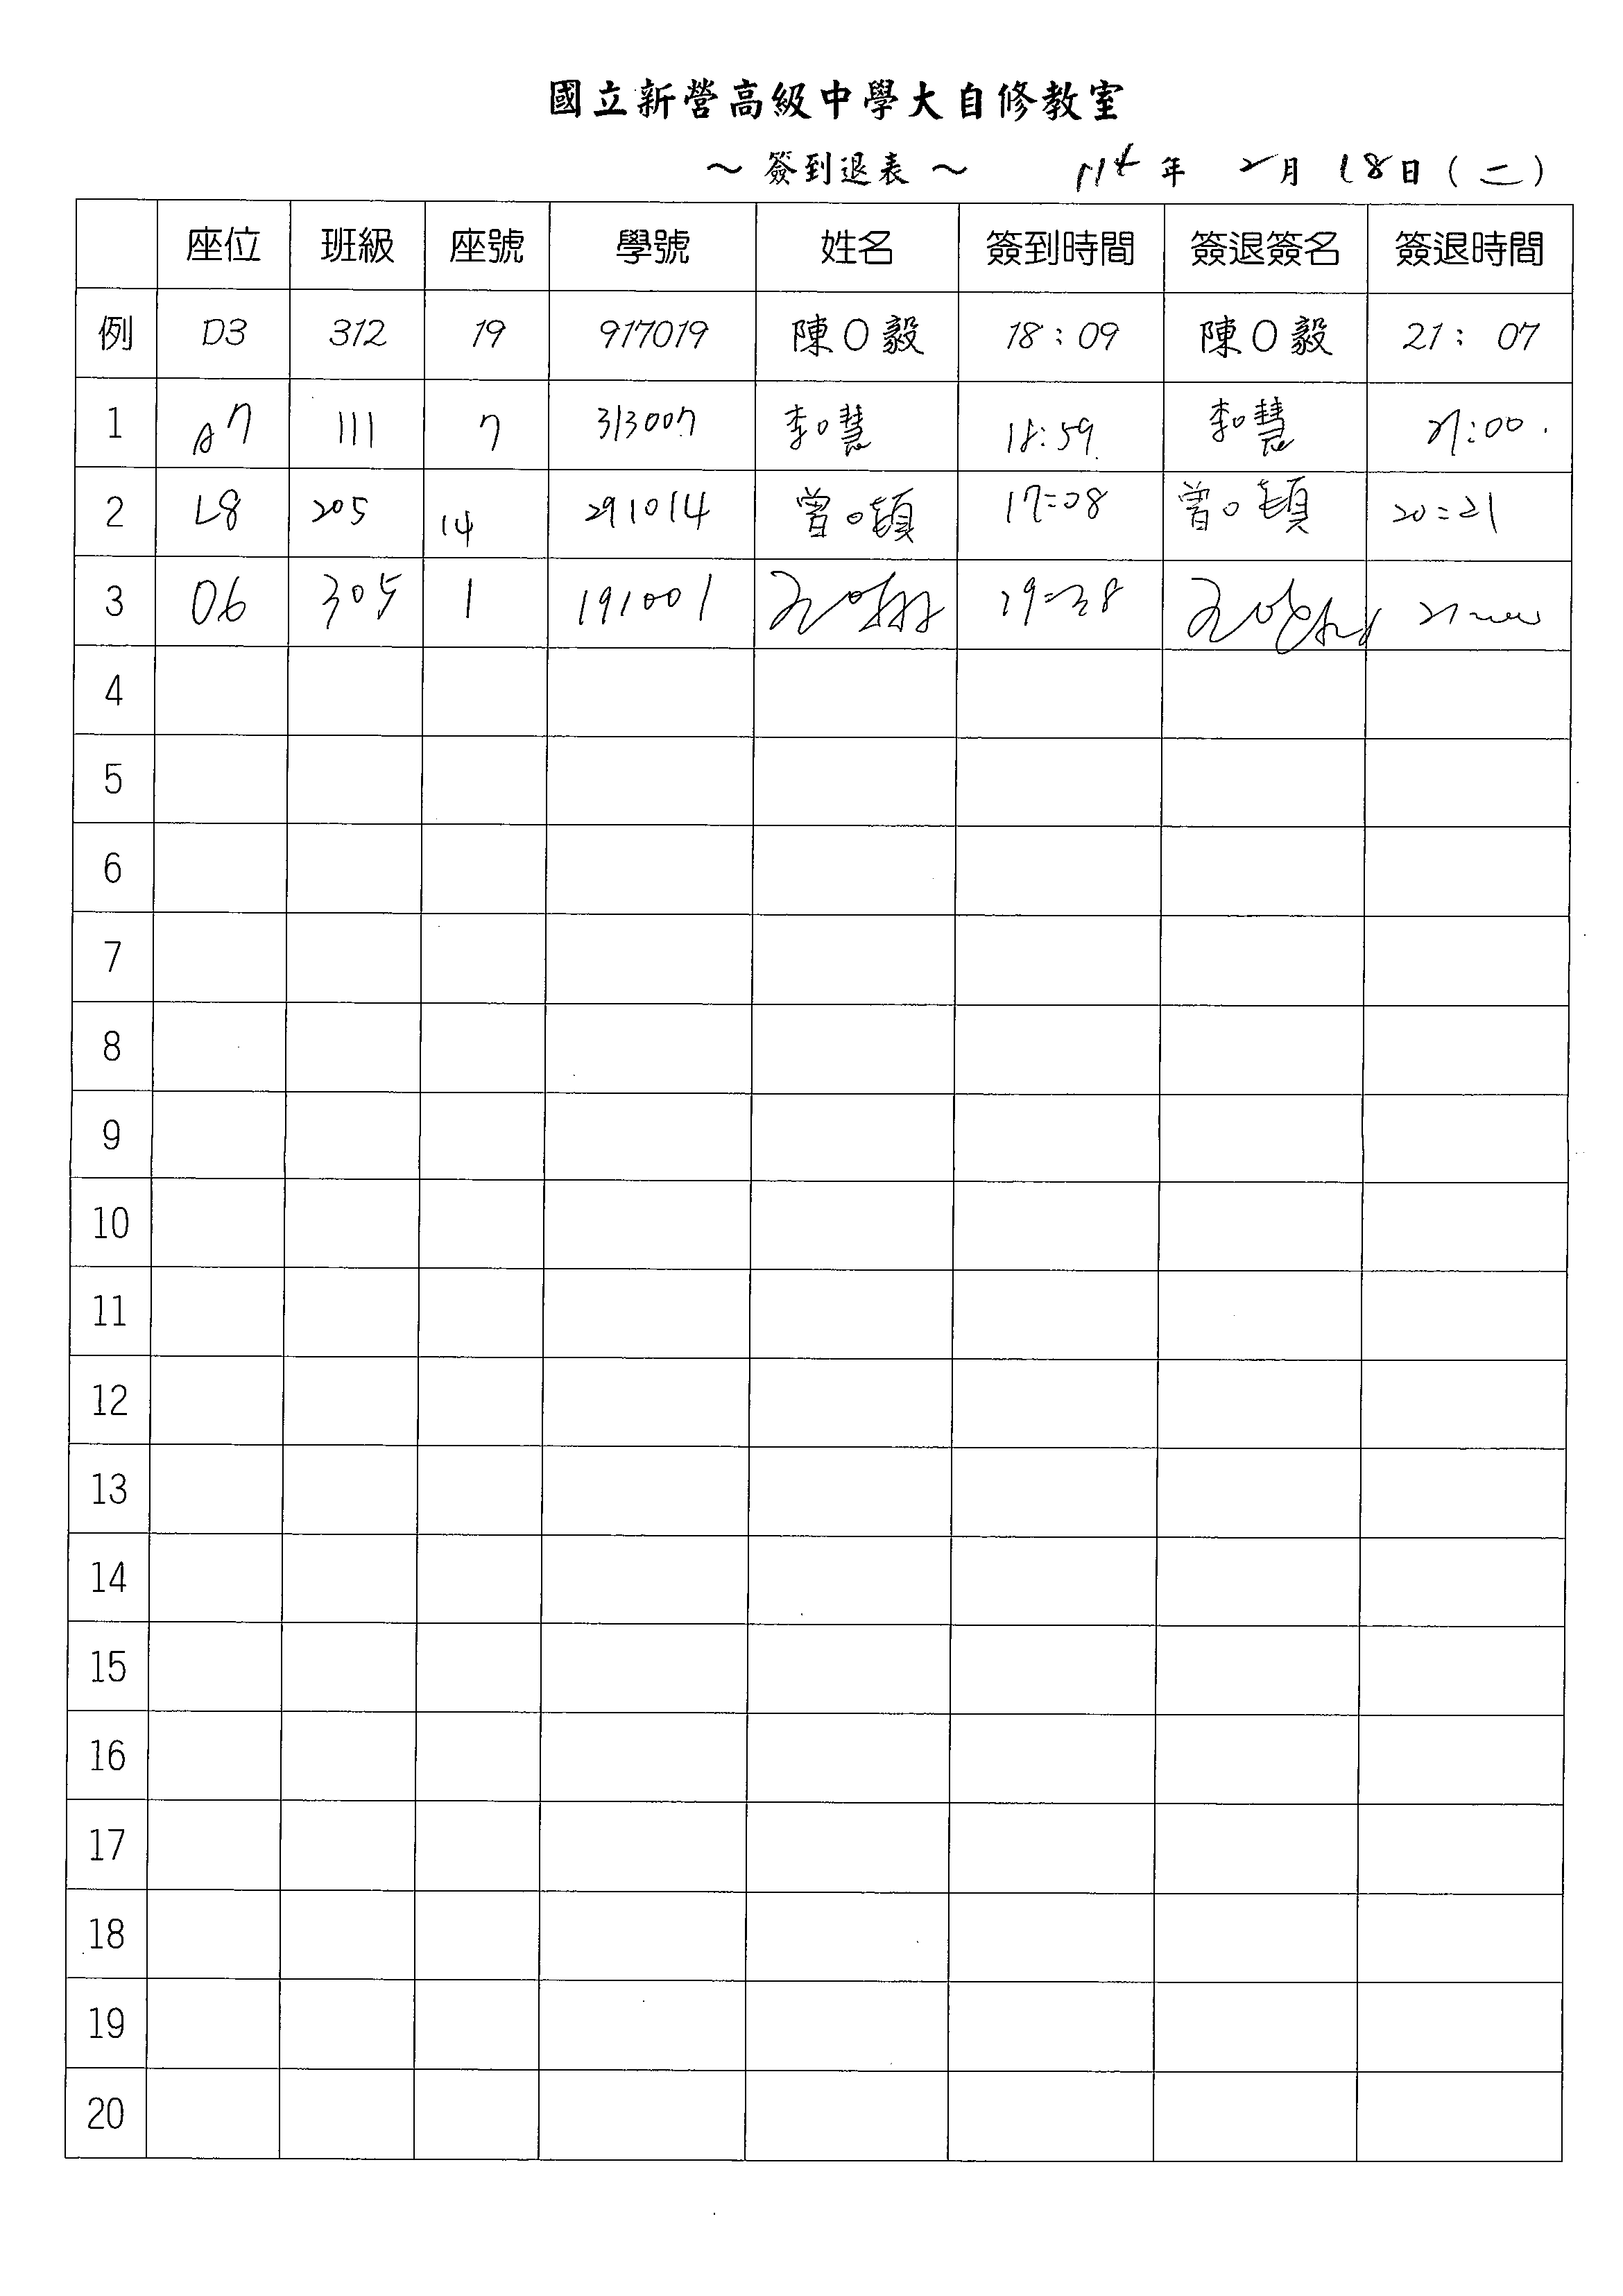 國立新營高級中學大自修教室
～ 簽到退表 ～ 114 年 2 月 18 日 ( 二 )
座位 班級 座號 學號 姓名 簽到時間 簽退簽名 簽退時間
例 D3 312 19 917019 陳O毅 18:09 陳O毅 21: 07
1 A7 111 7 313007 李O慧 18:59 李O慧 21:00
2 L8 205 14 291014 曾O頤 17:08 曾O頤 20:21
3 D6 305 1 191001
4
5
6
7
8
9
10
11
12
13
14
15
16
17
18
19
20